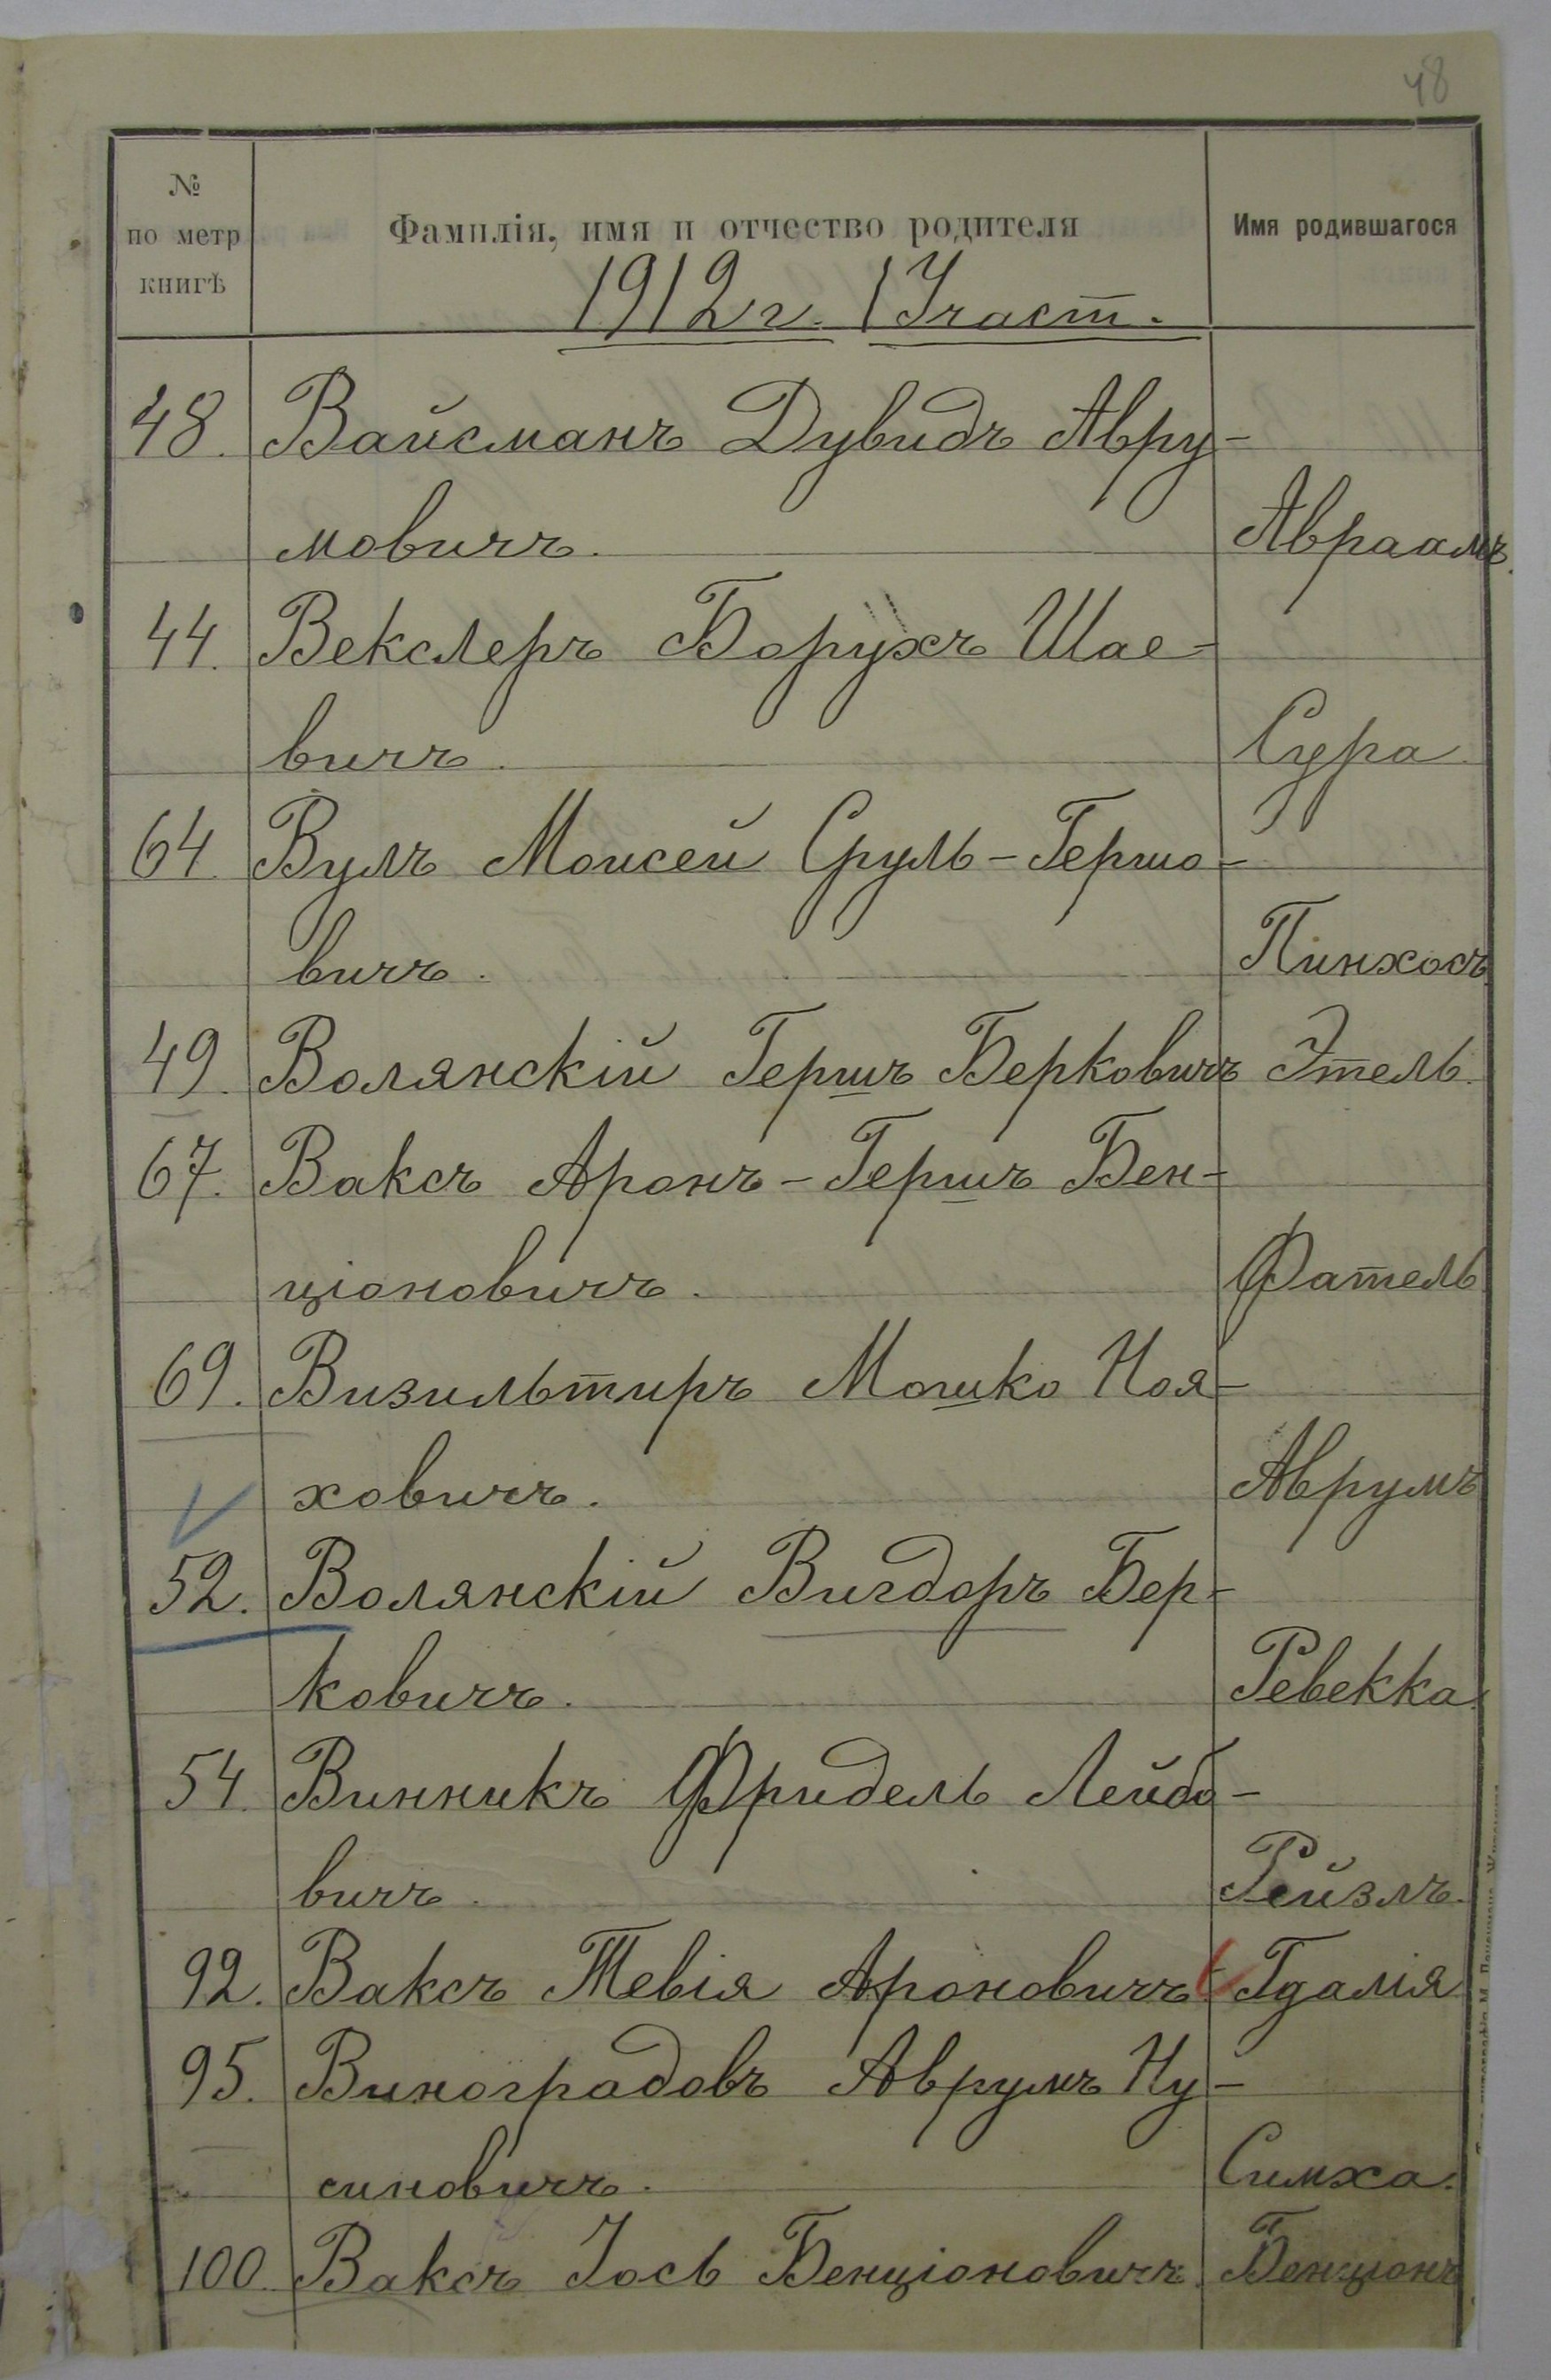 48
№
по метр
книгѣ
Фамилія, имя и отчество родителя
Имя родившагося
1912 г. 1 Участ.
48. Вайсманъ Дувидъ Авру-
мовичъ. Авраамъ.
44. Векслеръ Борухъ Шае-
вичъ. Сура.
64 Вулъ Моисей Сруль-Гершо-
вичъ. Пинхосъ.
49. Волянскій Гершъ Берковичъ Этель.
67. Ваксъ Аронъ-Гершъ Бен-
ціоновичъ. Фатель
69. Визильтиръ Мошко Ноя-
ховичъ. Аврумъ
52. Волянскій Вигдоръ Бер-
ковичъ. Ревекка.
54. Винникъ Фридель Лейбо-
вичъ. Рейзлъ.
92. Ваксъ Тевія Ароновичъ Гдалія
95. Виноградовъ Аврумъ Ну-
синовичъ. Симха.
100. Ваксъ Іось Бенціоновичъ. Бенціонъ